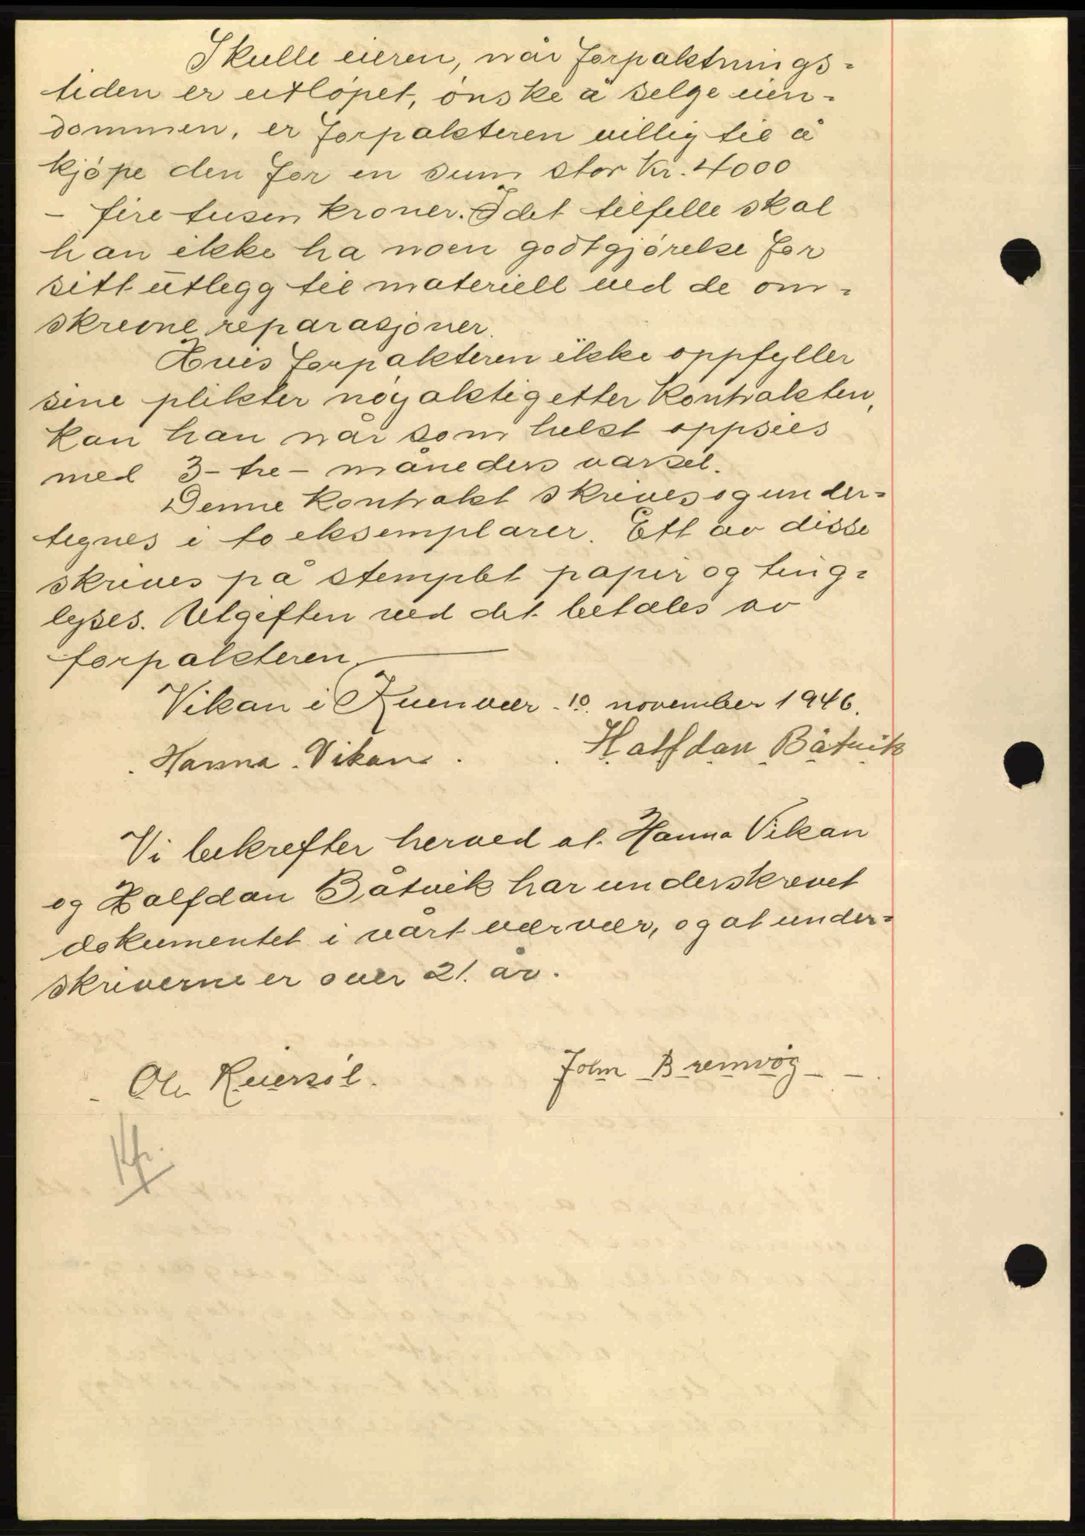 Skulle eieren, når forpaktnings-
tiden er utløpet, ønske å selge eien-
dommen, er forpakteren villig til å
kjøpe den for en sum stor kr. 4000
- fire tusen kroner. I det tilfelle skal
han ikke ha noen godtgjørelse for
sitt utlegg til materiell ved de om-
skrevne reparasjoner.
Hvis forpakteren ikke oppfyller
sine plikter nøyaktig etter kontrakten,
kan han når som helst oppsies
med 3 - tre - måneders varsel.
Denne kontrakt skrives og under-
tegnes i to eksemplarer. Ett av disse
skrives på stemplet papir og ting-
lyses. Utgiften ved det betales av
forpakteren.
Vikan i Kvenvær. 10. november 1946.
Hanna Vikan. Halfdan Båtvik
Vi bekrefter herved at Hanna Vikan
og Halfdan Båtvik har underskrevet
dokumentet i vårt nærvær, og at under-
skriverne er over 21. år.
John Bremvåg